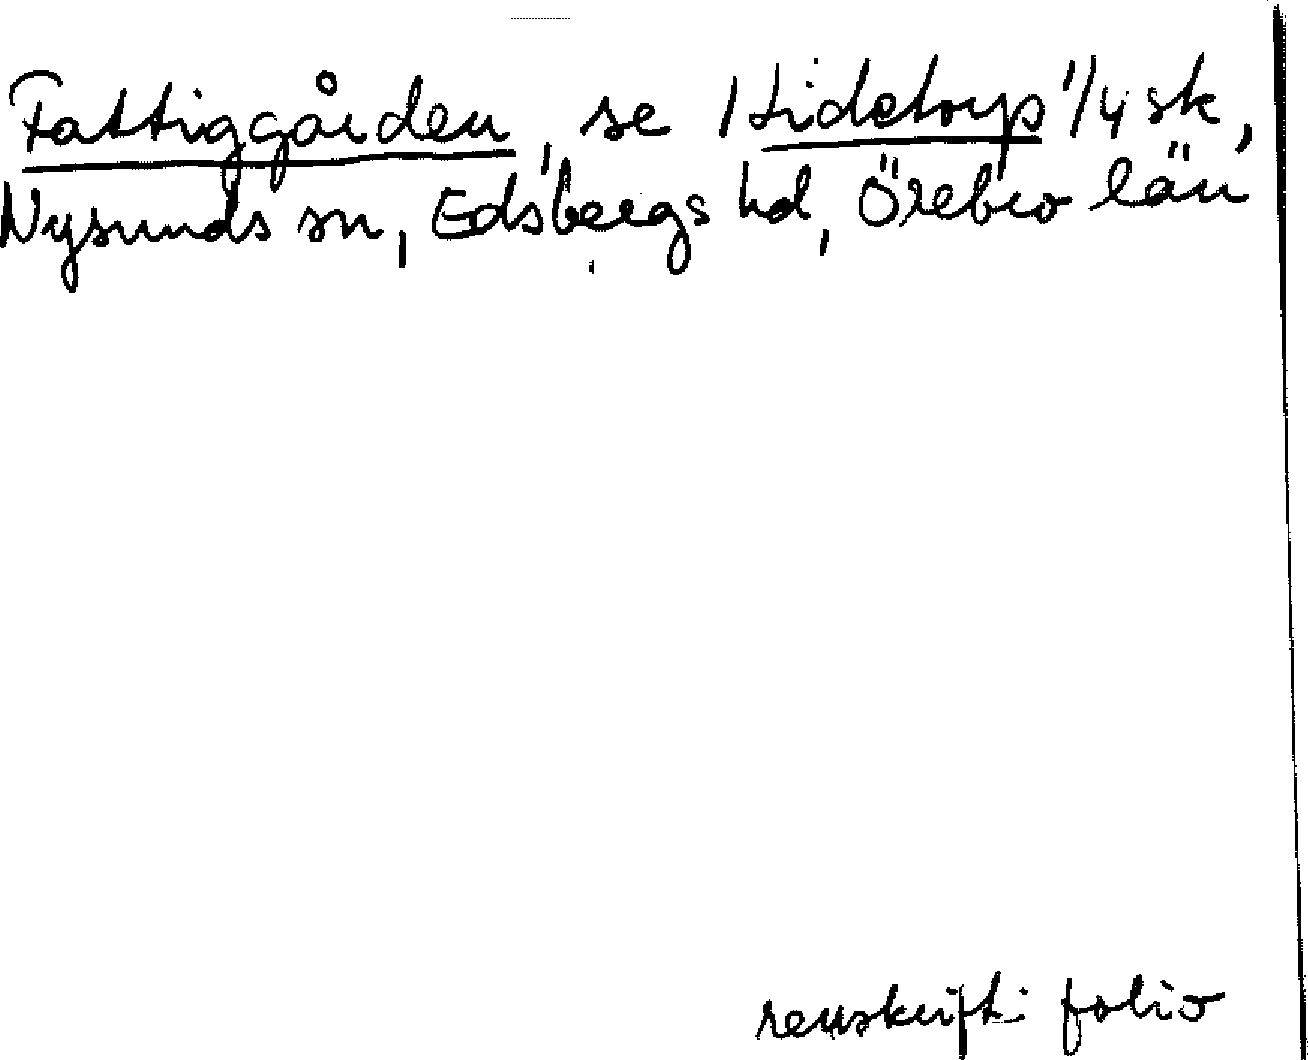 Fattiggården, se Hidetorp 1/4 sk,
Nysunds sn, Edsbergs hd, Örebro län
renskrift i folio